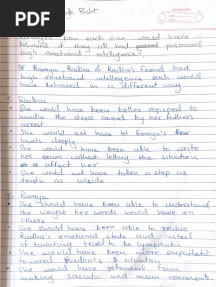 PDF
how each one would have
behaved if they all had possessed
high emotional intelligence?
If Ramya, Radha & Radha's friend had
high emotional intelligence each would
have behaved in a different way
Radha
She would have been better equipped to
handle the stress caused by her father's
arrest
She would not have let Ramya's
hurts deeply
She would have been able to write
her exam without letting the situation
affect her
She would not have taken a step as
drastic as suicide
Ramya
She should have been able to understand
the weight her words would have on
others
She should have been able to realise
Radha's emotional state and instead
of taunting tried to be sympathetic
She would have been more empathetic
toward Radha's situation
She would have refrained from
making sarcastic and mean comments